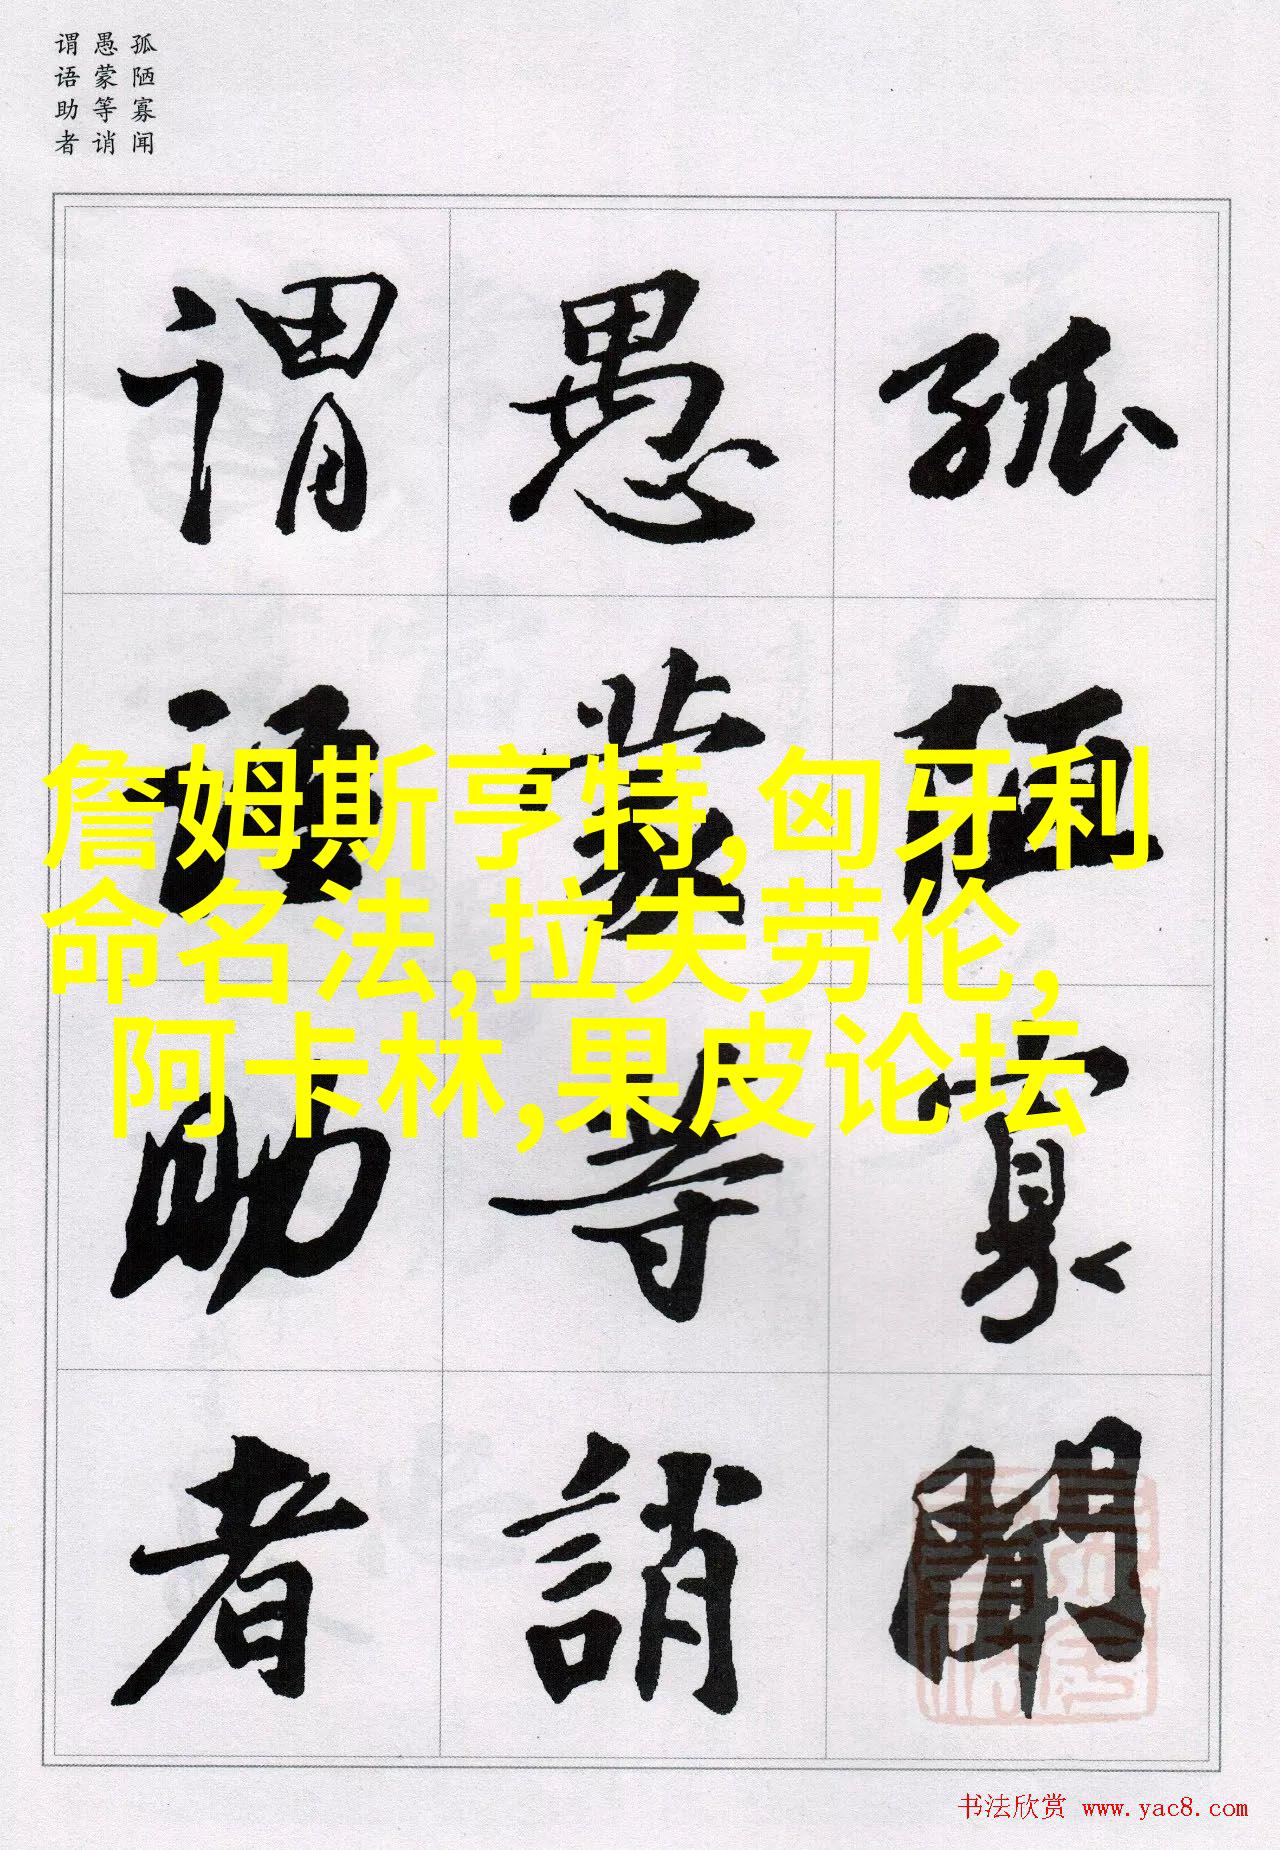 孤陋寡闻
愚蒙等诮
谓语助者
孤陋寡聞
愚蒙等誚
謂語助者
詹姆斯亨特,匈牙利
命名法,拉夫劳伦,
阿卡林,果皮论坛
书法欣赏 www.yac8.com